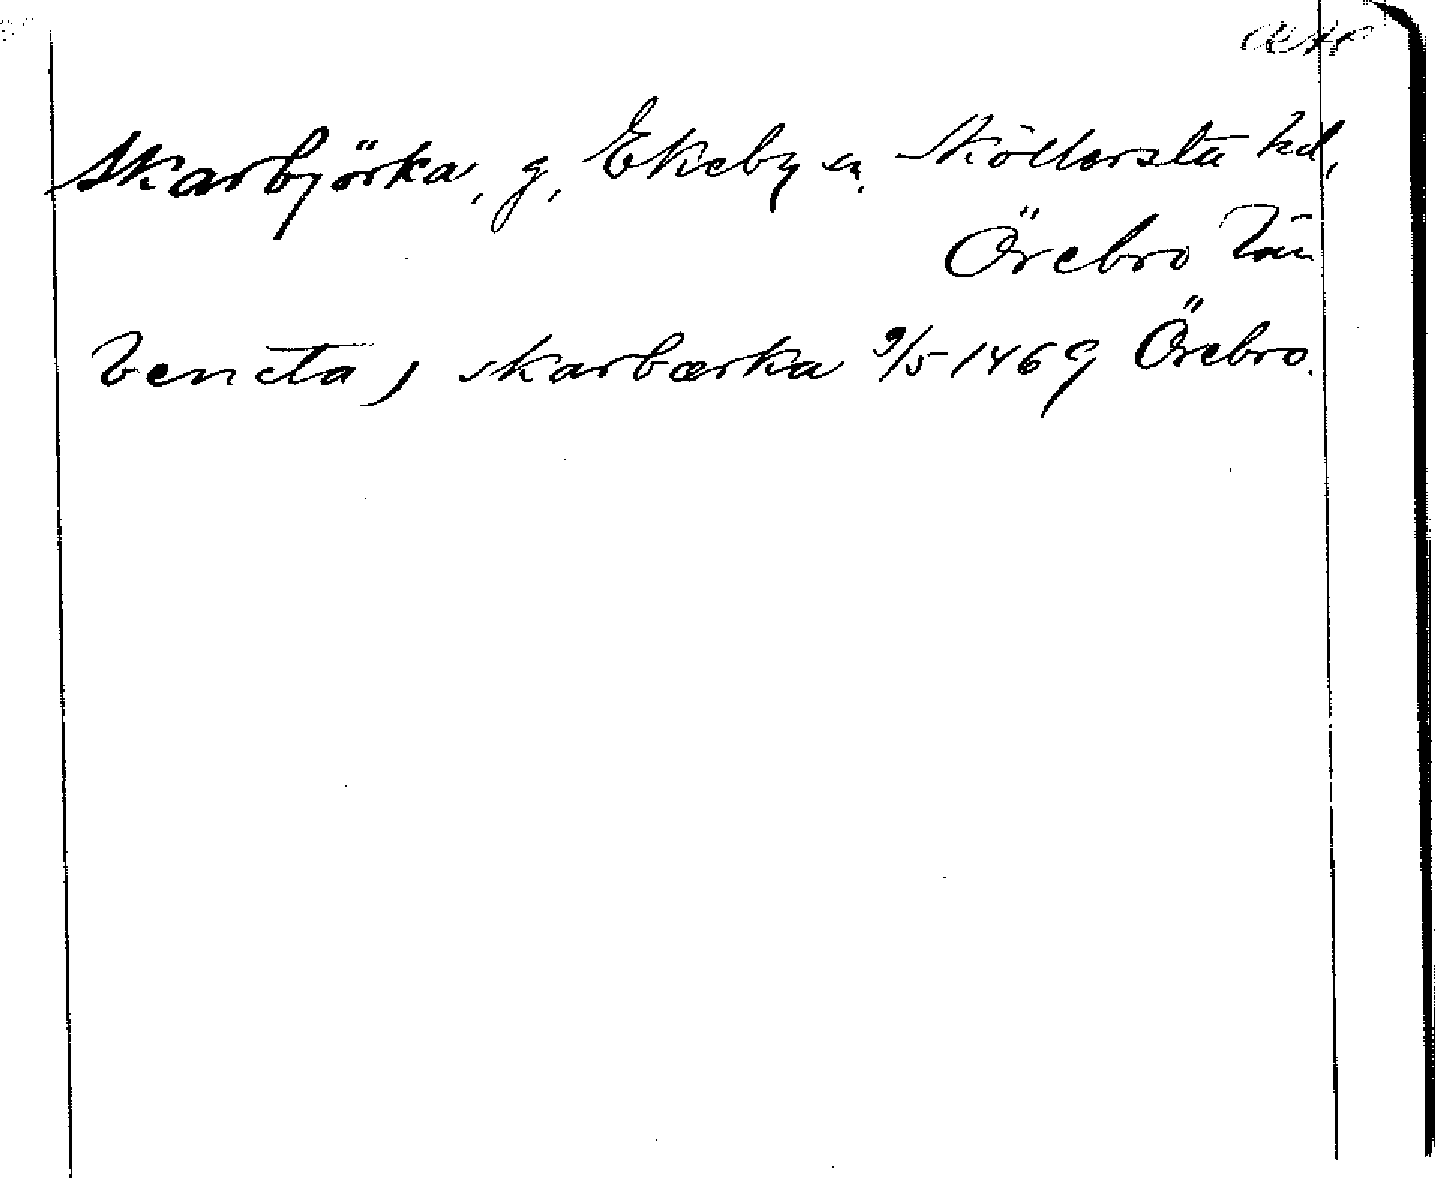 Skarbjörka, g, Ekeby sn. Sköllersta hd,
Örebro län
bencta j skarbærka 9/5 1469 Örebro.